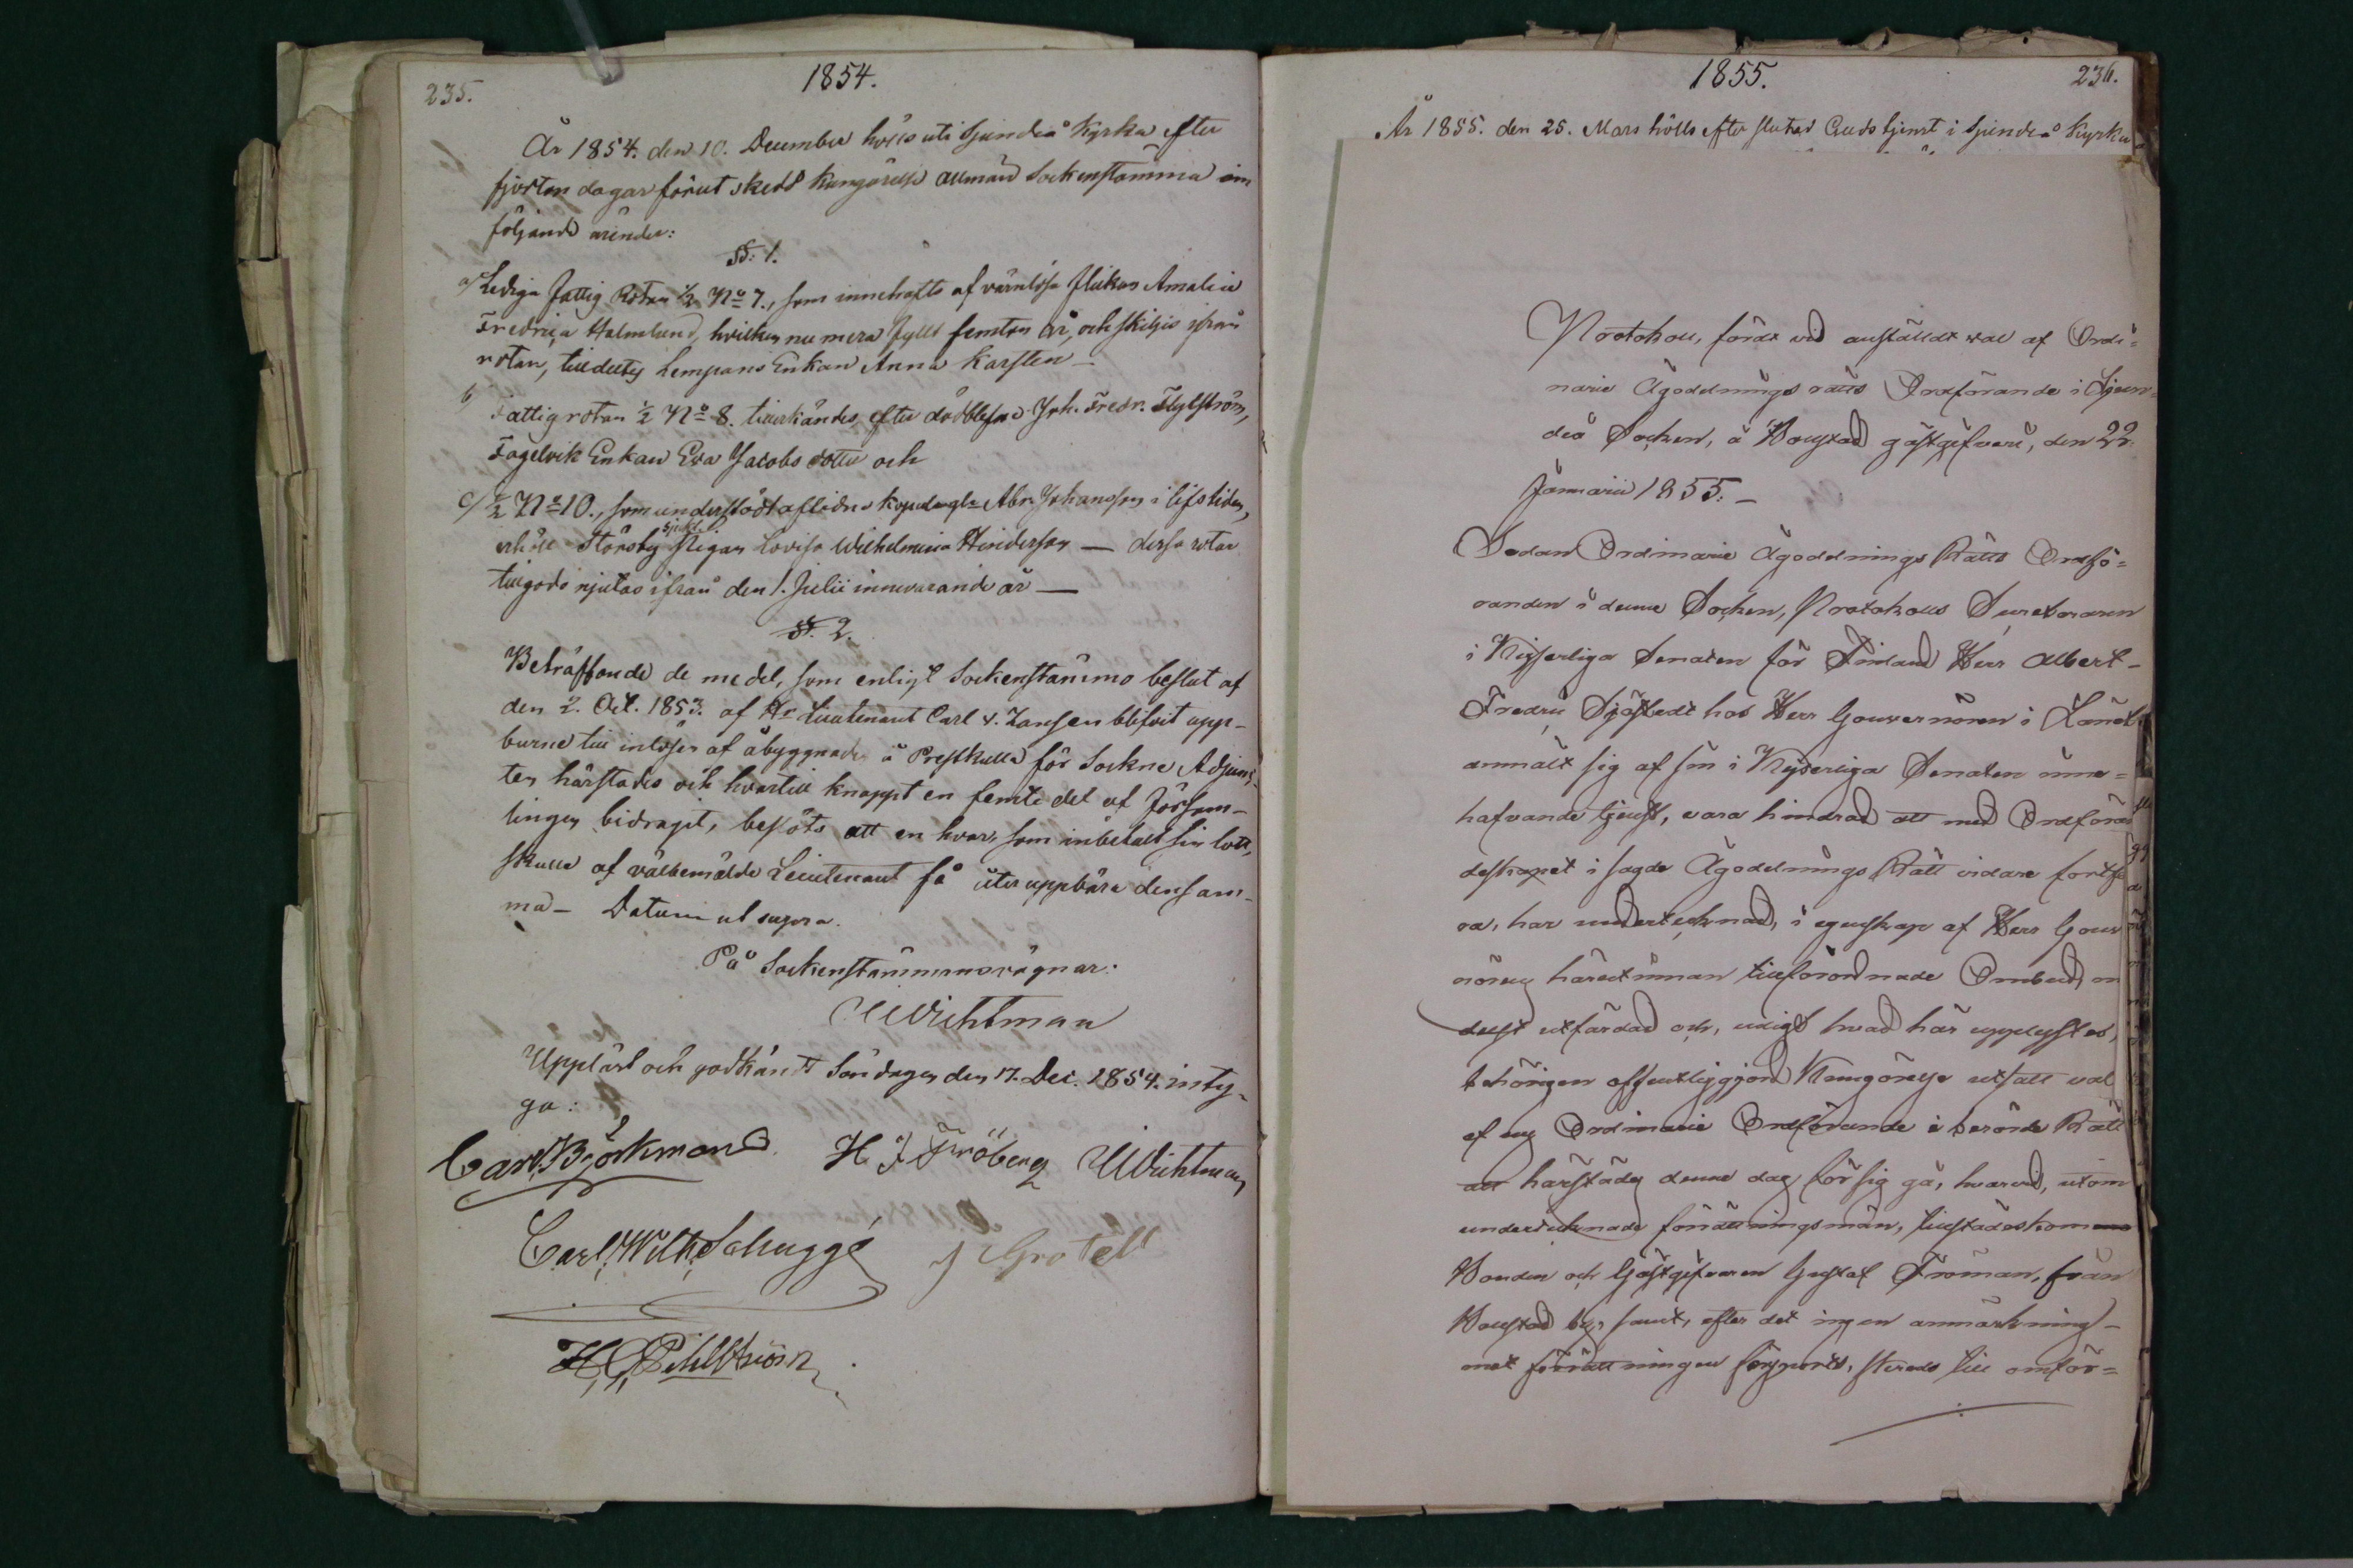 235.
1854.
År 1854. den 10. December hölls uti Sjundeå Kyrka efter
fjorton dagar förut skedd kungörelse allmän Sockenstämma om
följande ärender:
§§: 1.
a/ Lediga Fattig Rotan ½ No 7., som innehafts af värnlösa flickan Amalia
Fredrica Malmlund, hvilken numera fyllt femton år, och skiljes ifrån
rotan, tilldeltes Lempans Enkan Anna Karsten —
b/ Fattigrotan ½ No 8. tillerkändes, efter dödblefne Joh. Fredr. Flylström,
Fagelvik Enkan Eva Jacobs dotter och
c/ ½ No 10., som understödt aflidne Abr. Johansson i lifstiden,
erhöll Störsby sjukl. Pigan Lovisa Wilhelmina Hindersson — dessa rotar
tillgodo njutas ifrån den 1. Julii innevarande år —
§§. 2.
Beträffande de medel, som enligt Sockenstämmo beslut af
den 2. Oct. 1853. af Hr Lieutenant Carl v. Zansen blifvit upp-
burne till inlösen af åbyggnaden å Prestkulla för Sockne Adjunc-
ten härstädes och hvartill knappt en femte del af Församm-
lingen bidragit, beslöts att en hvar, som inbetalt sin lott,
skulle af välbemälde Lieutenant få återuppbära densam-
ma — Datum ut supra.
På Sockenstämmans vägnar:
Wichtman
Uppläst och godkändt Söndagen den 17. Dec. 1854. intyg-
ga:
Carl Björkman H J Fröberg Wichtman
Carl Wilh. Schuggé J Grotell
H. G. Pihlström
1855.
236.
År 1855. den 25. Mars hölls efter slutad Gudstjenst i Sjundeå Kyrka
Protokoll, fördt vid anställdt val af Ordi=
narie Ägodelnings rätts Ordförande i Sjun=
deå Socken, å Boustad gästgifveri, den 22.
Januarii 1855. —
Sedan Ordinarie Ägodelnings Rätts Ordfö=
randen i denne Socken, Protokolls Secreteraren
i Kejserliga Senaten för Finland Herr Albert
Fredric Sjöstedt hos Herr Gouvernören i Länet
anmält sig af sin i Kejserliga Senaten inne=
hafvande tjenst, vara hindrad att med Ordföran
deskapet i sagde Ägodelnings Rätt vidare fortfa
ra, har undertecknad, i egenskap af Herr Gouv
nörens härutinnan tillförordnade Ombud,
utfärdad och, enligt hvad här upplystes,
behörigen offentliggjord Kungörelse utsatt val
af ny Ordinarie Ordförande i berörde Rätt
att härstädes denne dag för sig gå, hvarvid, utom
undertecknade förrättningsmän, tillstädeskommo
Bonden och Gästgifvaren Gustaf Froman, från
Boustad by, samt, efter det ingen anmärkning
mot förrättningen försports, skreds till omför=